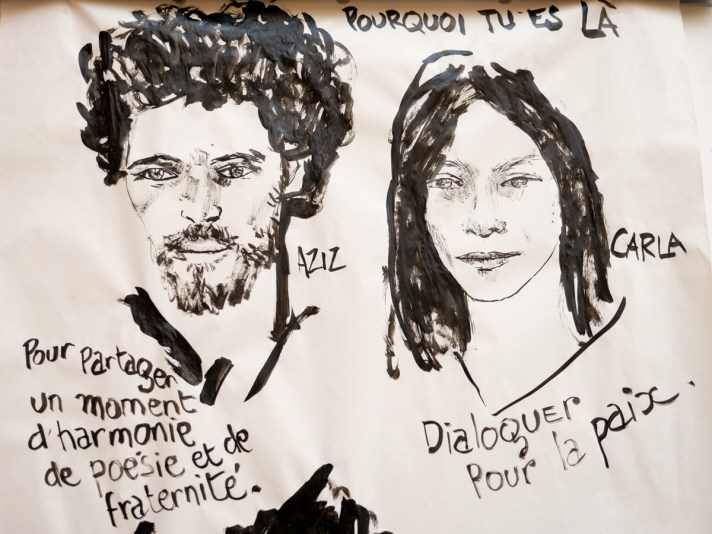 POURQUOI TU ES LÀ
AZIZ
CARLA
Pour partager
un moment
d'harmonie
de poésie et de
fraternité.
Dialoguer
Pour la paix.